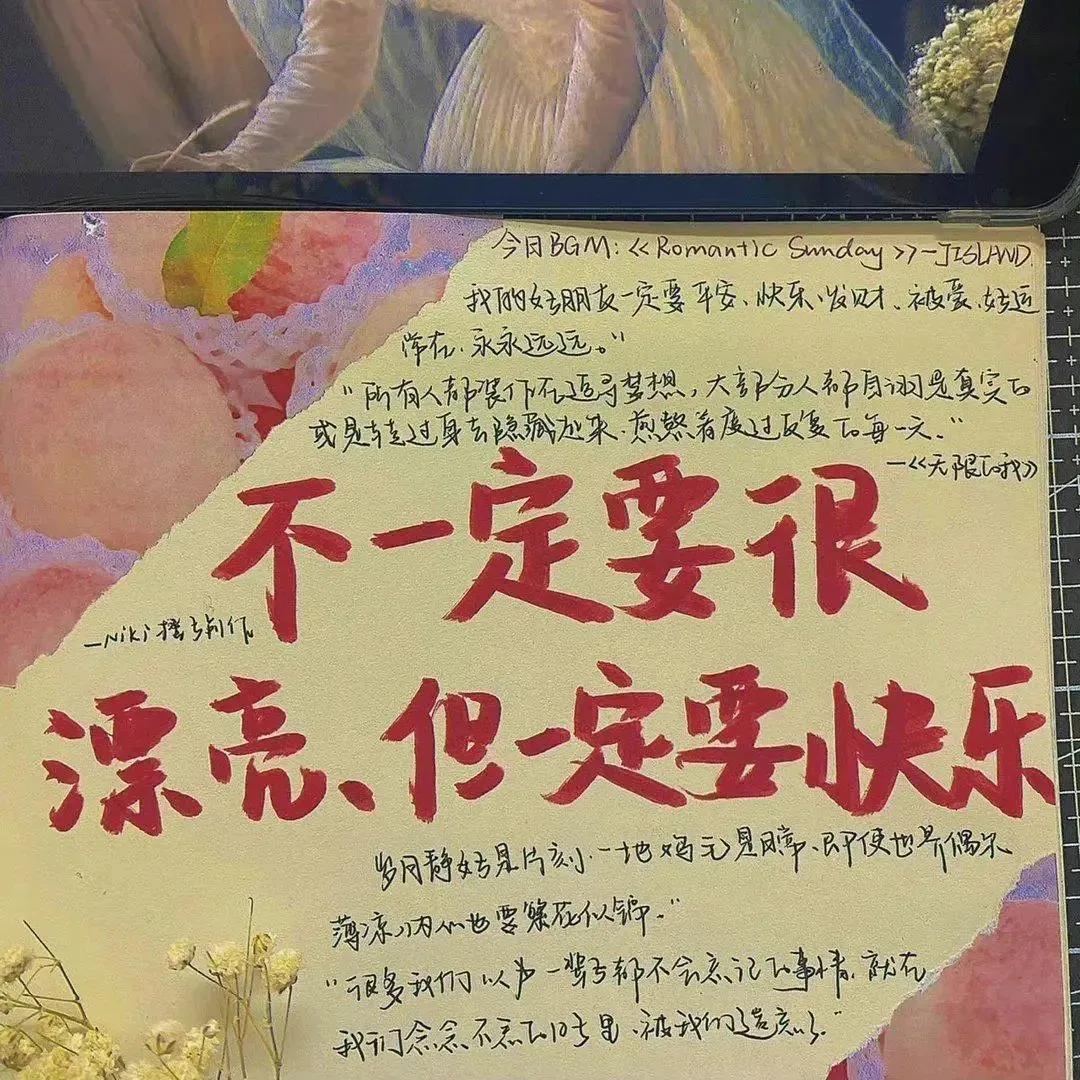 今日BGM:《Romantic Sunday》—JISLAND
我的好朋友一定要平安、快乐、发财、被爱、好运
常在、永永远远。"
"所有人都装作在追寻梦想，大部分人都自诩是真实的
或是转过身去隐藏起来、煎熬着度过反复的每一天。"
—《无限的我》
不一定要很
—Niki 创作
漂亮、但一定要快乐
岁月静好是片刻、一地鸡毛是日常、即使世界偶尔
薄凉、内心也要繁花似锦。"
"很多我们以为一辈子都不会忘记的事情，就在
我们念念不忘的日子里、被我们遗忘了"